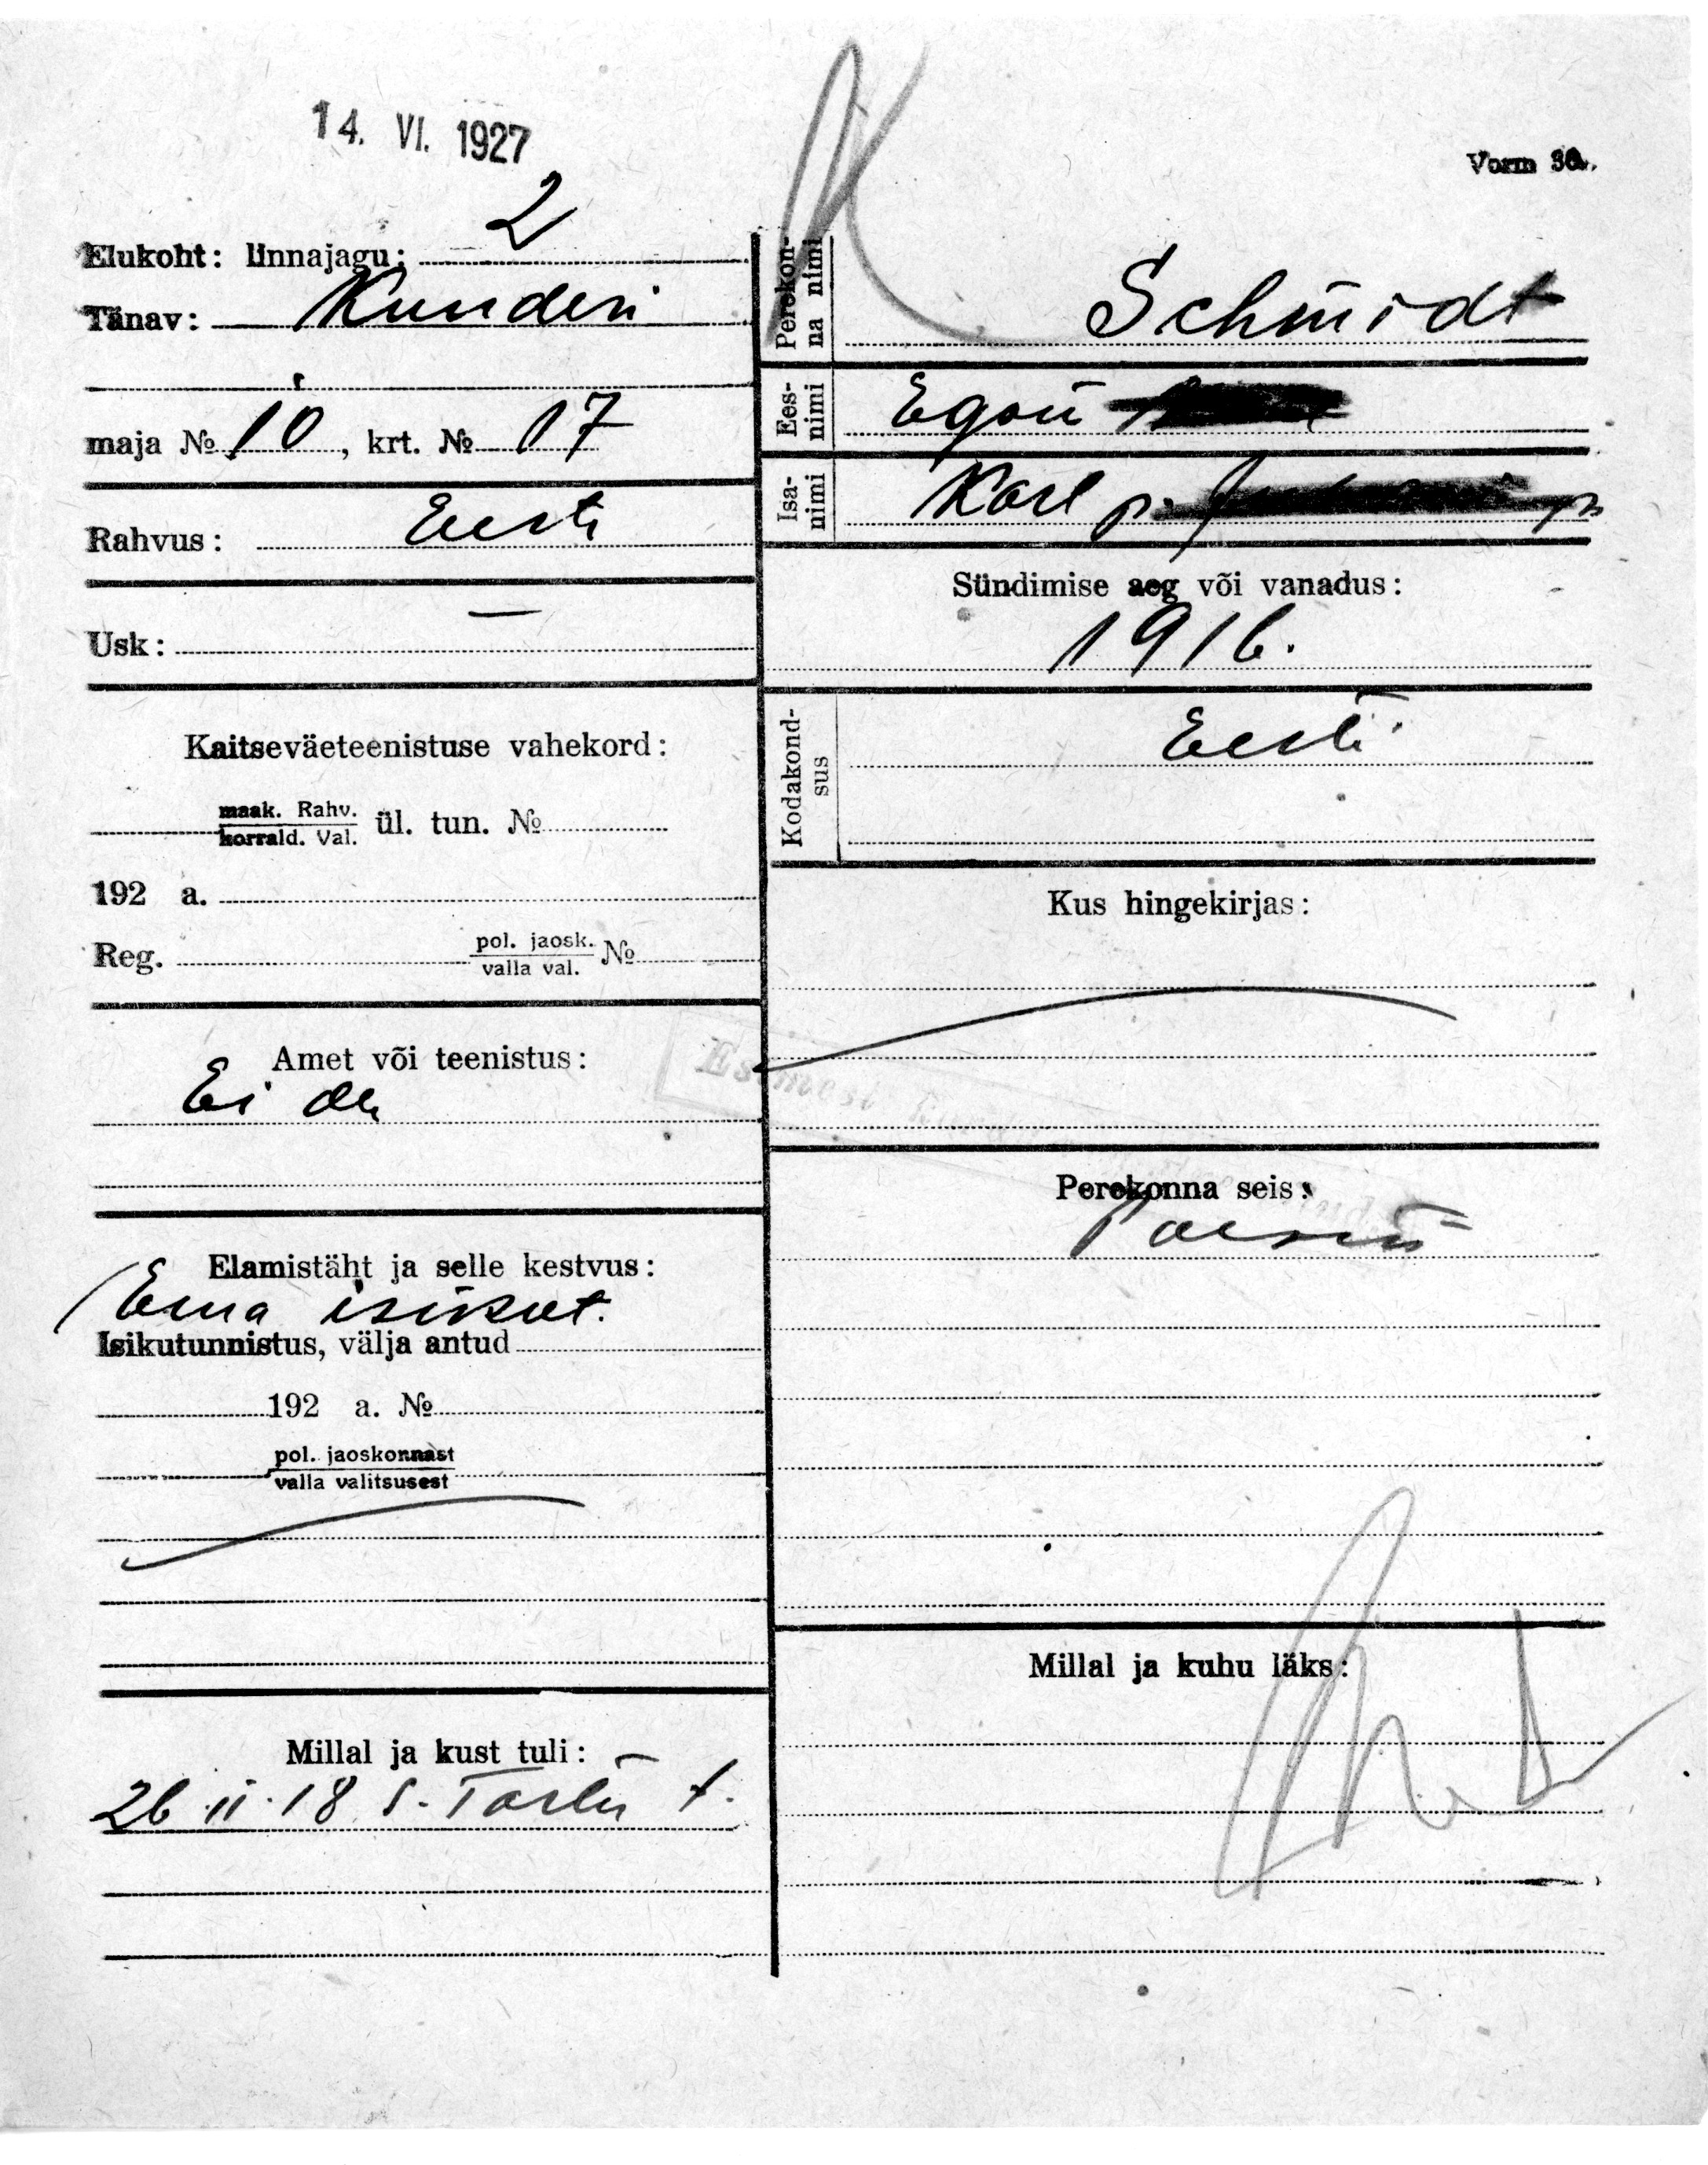 14. VI. 1927
Vorm 30.
Elukoht: linnajagu: 2
Tänav: Kunderi
maja № 10, krt. № 17
Rahvus: Eesti
Usk: —
Kaitseväeteenistuse vahekord:
maak. Rahv.
korrald. Val. ül. tun. №
192 a.
Reg. pol. jaosk. №
valla val.
Amet või teenistus:
Ei ole
Elamistäht ja selle kestvus:
Ema isikut.
Isikutunnistus, välja antud
192 a. №
pol. jaoskonnast
valla valitsusest
Millal ja kust tuli:
26.II.18 s. Tartu t.
Perekon-
na nimi
Schmidt
Ees-
nimi
Egon
Isa-
nimi
Karl p.
Sündimise aeg või vanadus:
1916.
Kodakond-
sus
Eesti
Kus hingekirjas:
Perekonna seis:
Millal ja kuhu läks: